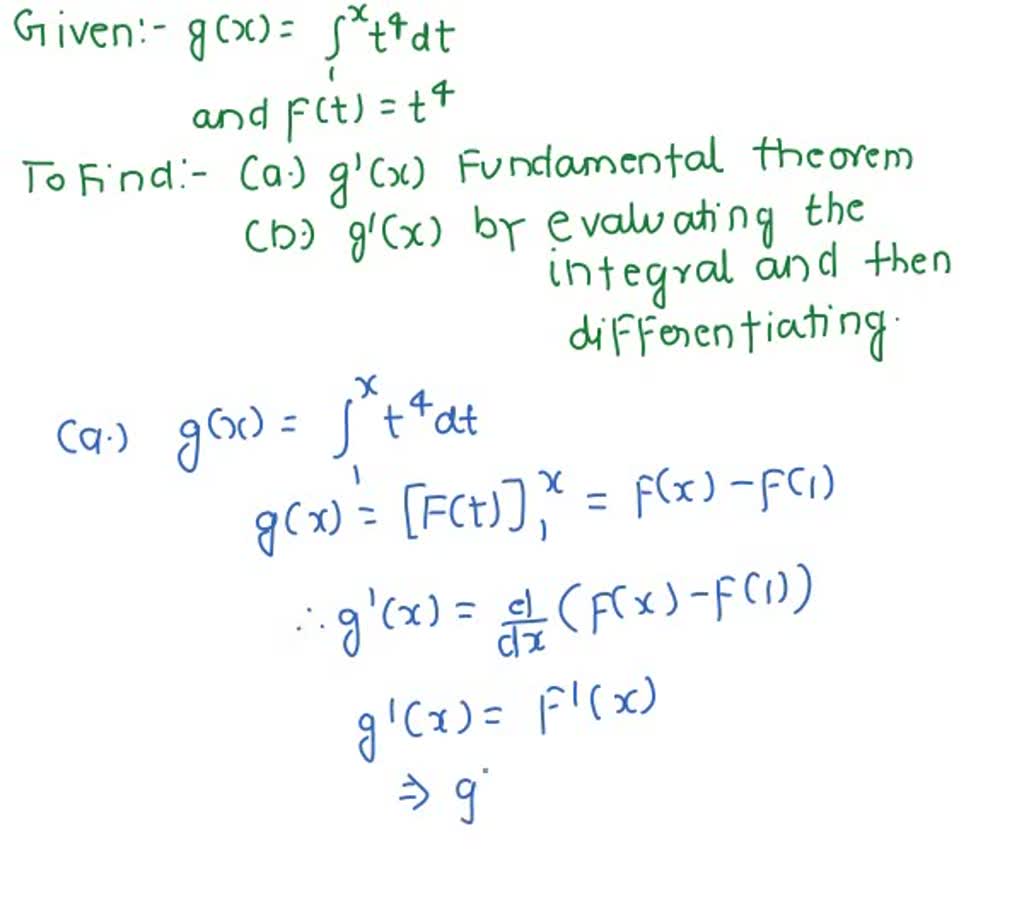 Given:- g(x) = ∫₁ˣ t⁴dt
and F(t) = t⁴
To Find:- (a.) g'(x) Fundamental theorem
(b.) g'(x) by evaluating the
integral and then
differentiating.
(a.) g(x) = ∫₁ˣ t⁴dt
g(x) = [F(t)]₁ˣ = F(x) - F(1)
∴ g'(x) = d/dx (F(x) - F(1))
g'(x) = F'(x)
⇒ g'